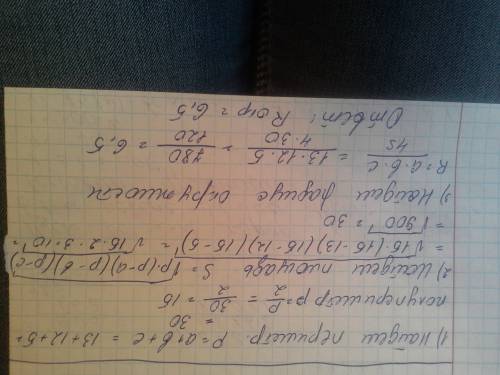 1) Найдем периметр. P=a+b+c = 13+12+5=
= 30
полупериметр p = P/2 = 30/2 = 15
2) Найдем площадь S = √p(p-a)(p-b)(p-c) =
= √15(15-13)(15-12)(15-5) = √15·2·3·10 =
= √900 = 30
3) Найдем радиус окружности
R = a·b·c/4S = 13·12·5/4·30 = 780/120 = 6,5
Ответ: R окр = 6,5